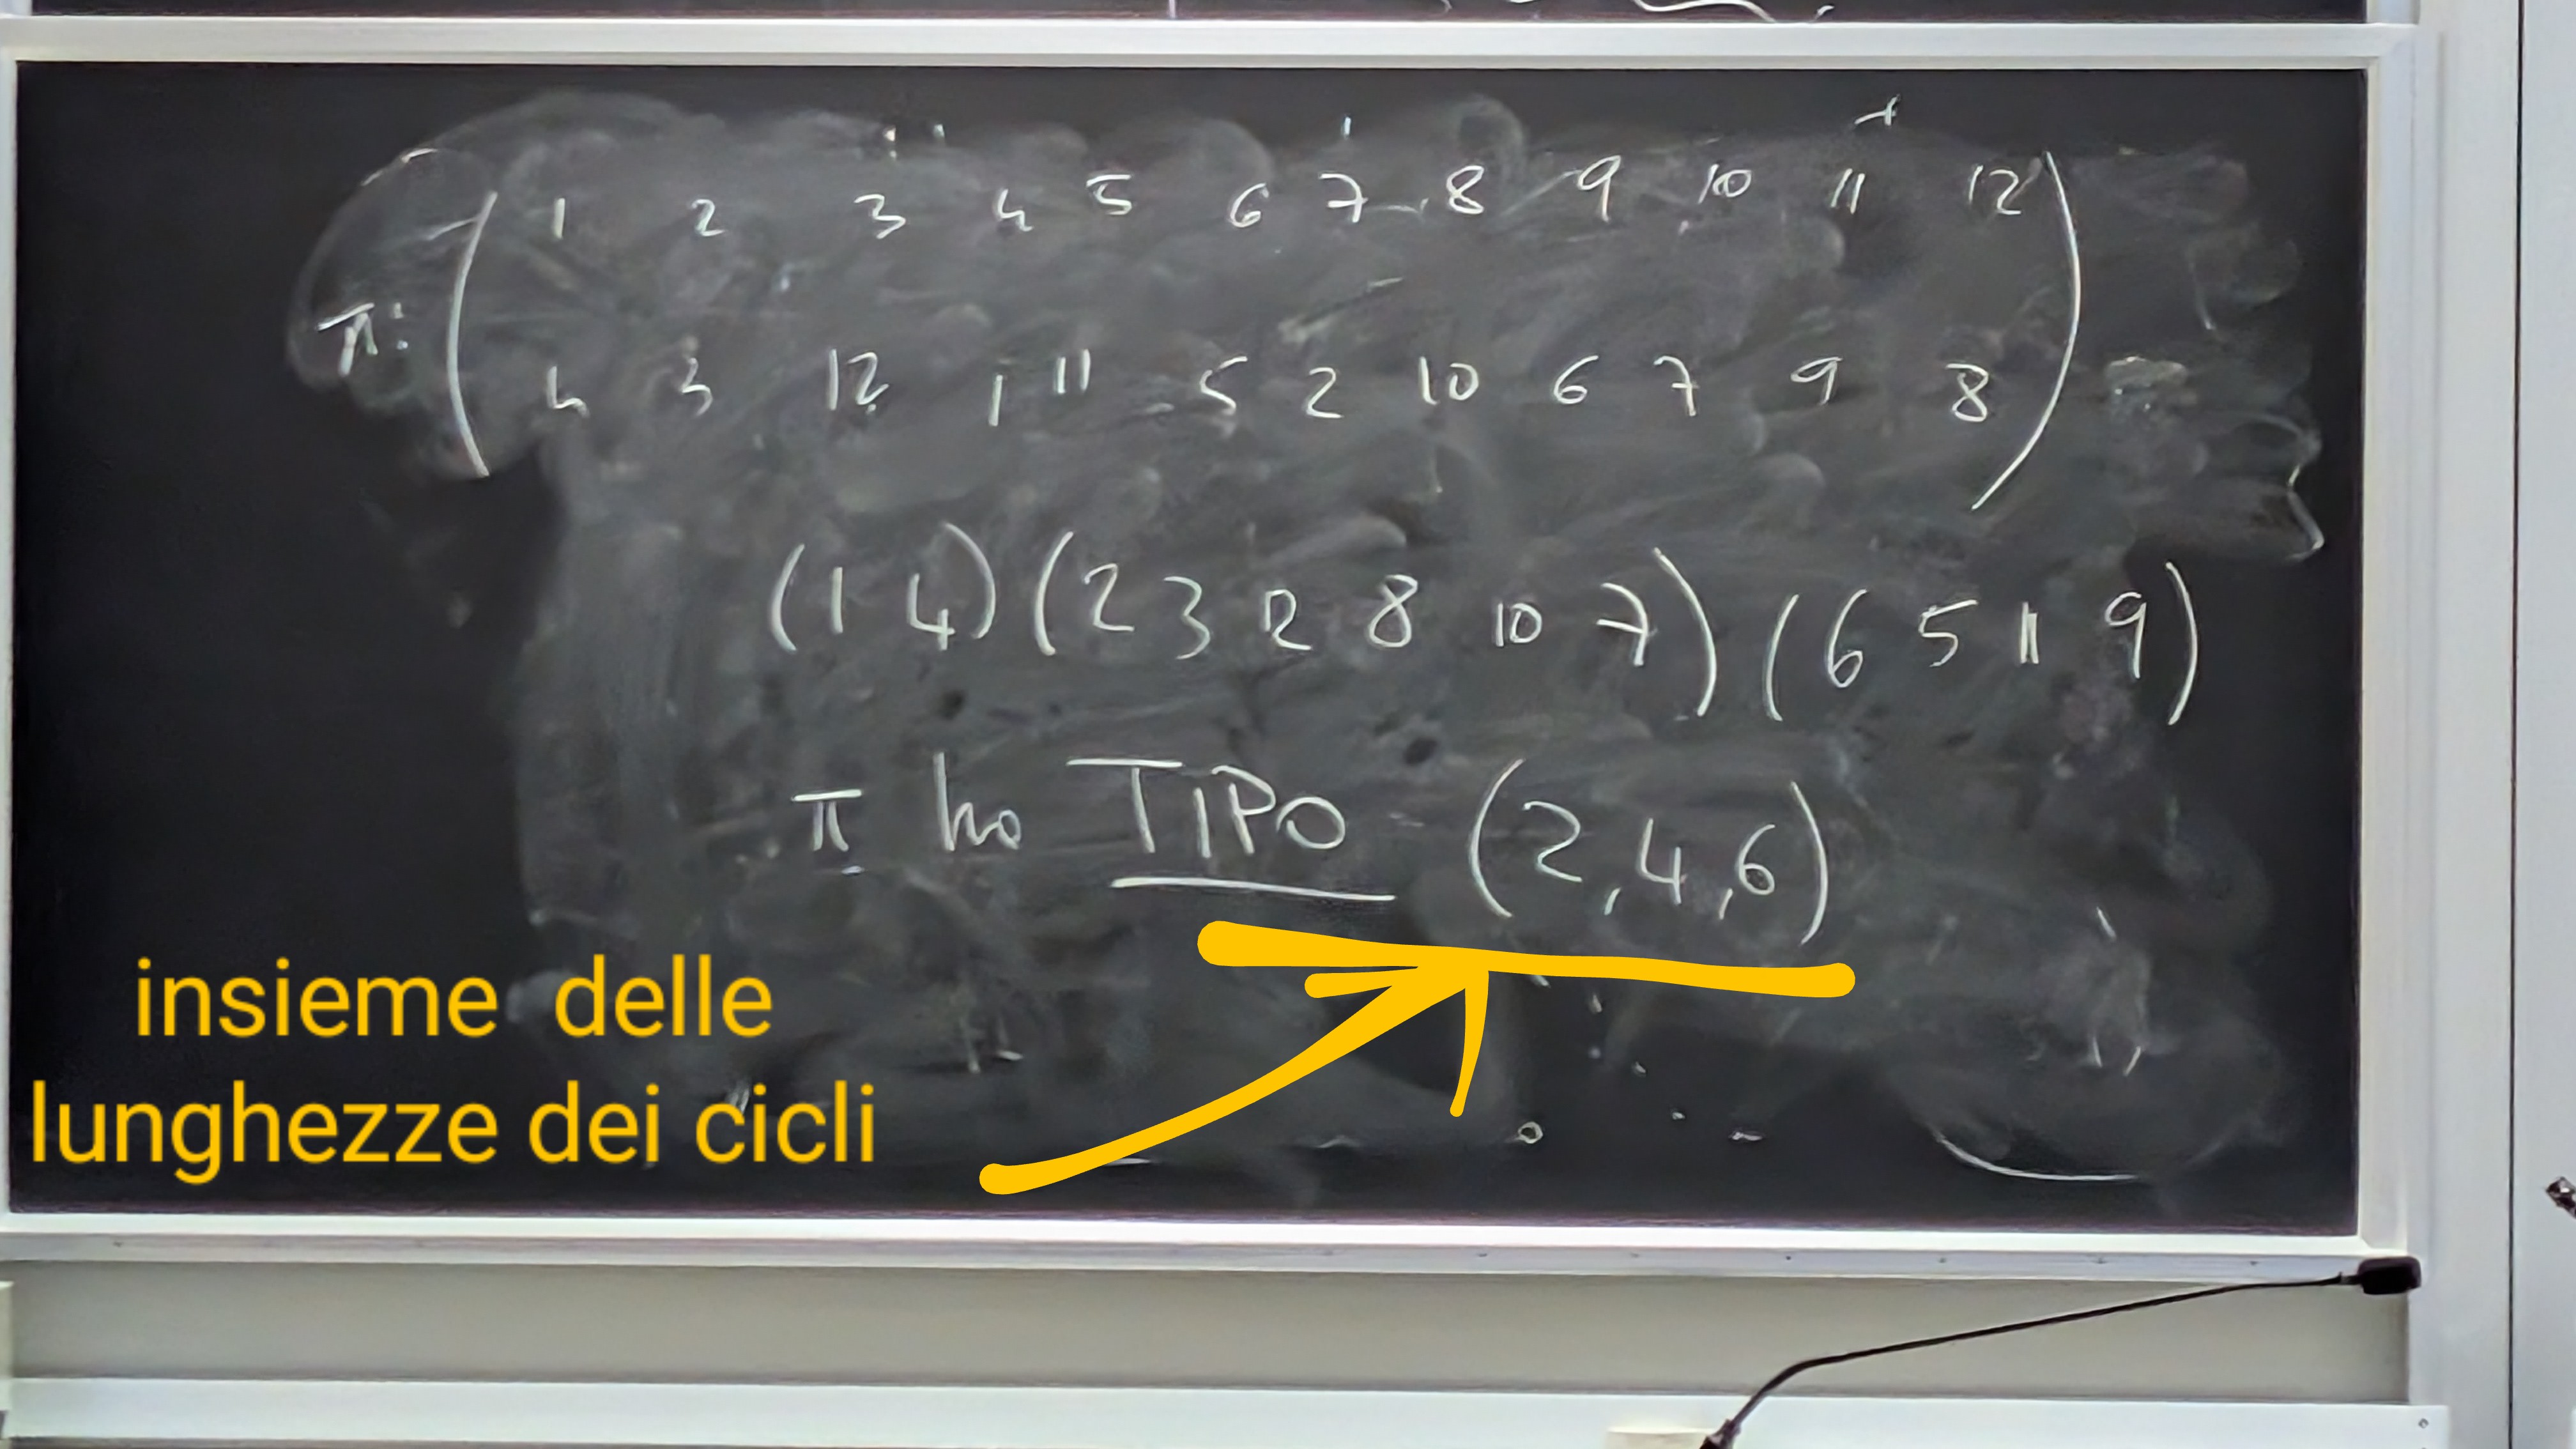 1 2 3 4 5 6 7 8 9 10 11 12
π:
4 3 12 1 11 5 2 10 6 7 9 8
(1 4)(2 3 12 8 10 7)(6 5 11 9)
π ha TIPO (2,4,6)
insieme delle
lunghezze dei cicli